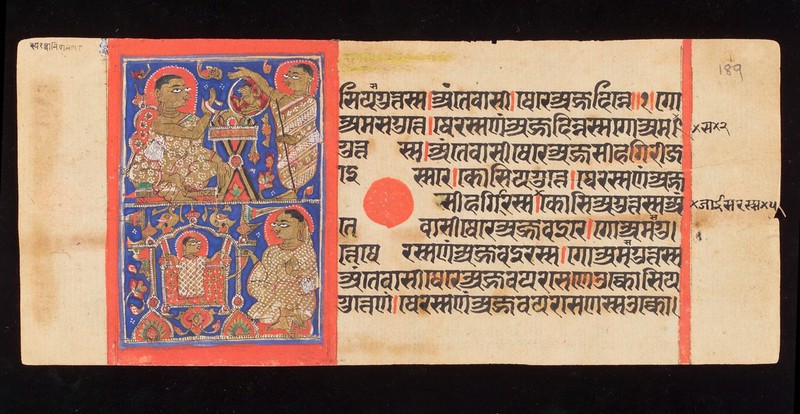 189
सियगुत्तस्स।अंतेवासी।थेरेअज्जदिन्ने॥१।गो
अमसगुत्ते।थेरस्सणंअज्जदिन्नस्सगोअमस
गुत्तस्स।अंतेवासीथेरेअज्जसीहगिरीजा
इस्सरे।कोसियगुत्ते।थेरस्सणंअज्ज
सीहगिरिस्स।कोसिअगुत्तस्सअं
तेवासीथेरेअज्जवइरे।गोअमसगु
त्तेथेरस्सणंअज्जवइरस्स।गोअमसगुत्तस्स
अंतेवासी।थेरेअज्जवयरसेणेउक्कोसिय
गुत्तेणं।थेरस्सणंअज्जवयरसेणस्सउक्को